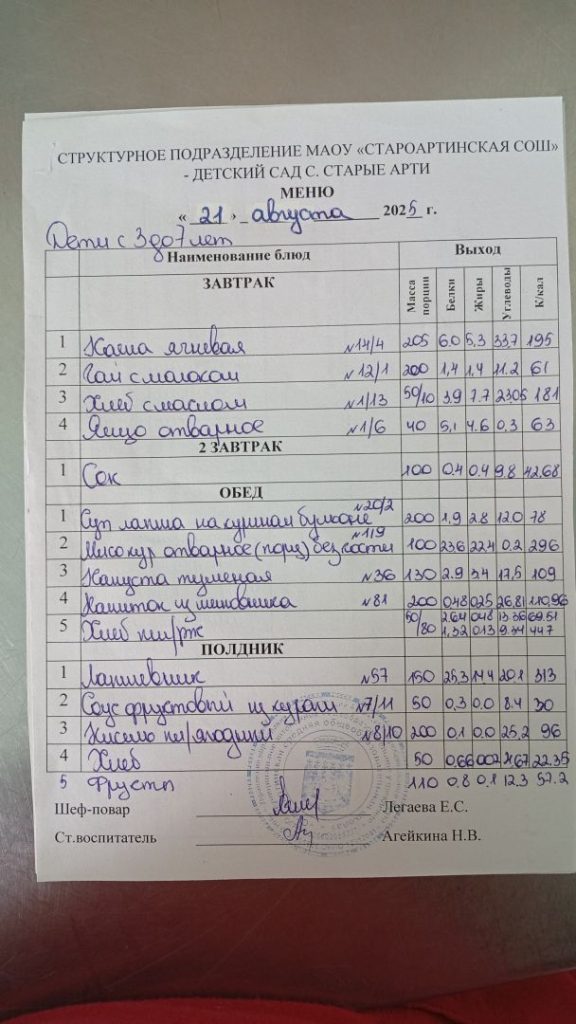 СТРУКТУРНОЕ ПОДРАЗДЕЛЕНИЕ МАОУ «СТАРОАРТИНСКАЯ СОШ»
- ДЕТСКИЙ САД С. СТАРЫЕ АРТИ
МЕНЮ
« 21 » августа 2025 г.
Дети с 3 до 7 лет
Наименование блюд Выход
ЗАВТРАК Масса порции Белки Жиры Углеводы К/кал
1 Каша ячневая №14/4 205 6.0 5,3 33.7 195
2 Чай с молоком №12/1 200 1,4 1.4 11.2 61
3 Хлеб с маслом №1/13 50/10 3.9 7.7 23.05 181
4 Яйцо отварное №1/6 40 5,1 4.6 0,3 63
2 ЗАВТРАК
1 Сок 100 0.4 0.4 9.8 42.68
ОБЕД
1 Суп лапша на курином бульоне №20/2 200 1,9 2.8 12.0 78
2 Мясо кур отварное (порц) без кости №1/9 100 23.6 22.4 0.2 296
3 Капуста тушеная №36 130 2.9 3.4 17,5 109
4 Напиток из шиповника №81 200 0,48 0.25 26.81 110,96
5 Хлеб пш/рж 50/80 2.64 0.48 13.36 69.51
1,32 0.13 9.34 44.7
ПОЛДНИК
1 Лапшевник №57 150 25,3 14.4 20.1 313
2 Соус фруктовый из кураги №7/11 50 0,3 0.0 8.4 30
3 Кисель пл/ягодный №8/10 200 0.1 0.0 25,2 96
4 Хлеб 50 0,66 0.02 4.67 22.35
5 Фрукты 110 0.8 0.1 12.3 57.2
Шеф-повар Легаева Е.С.
Ст.воспитатель Агейкина Н.В.